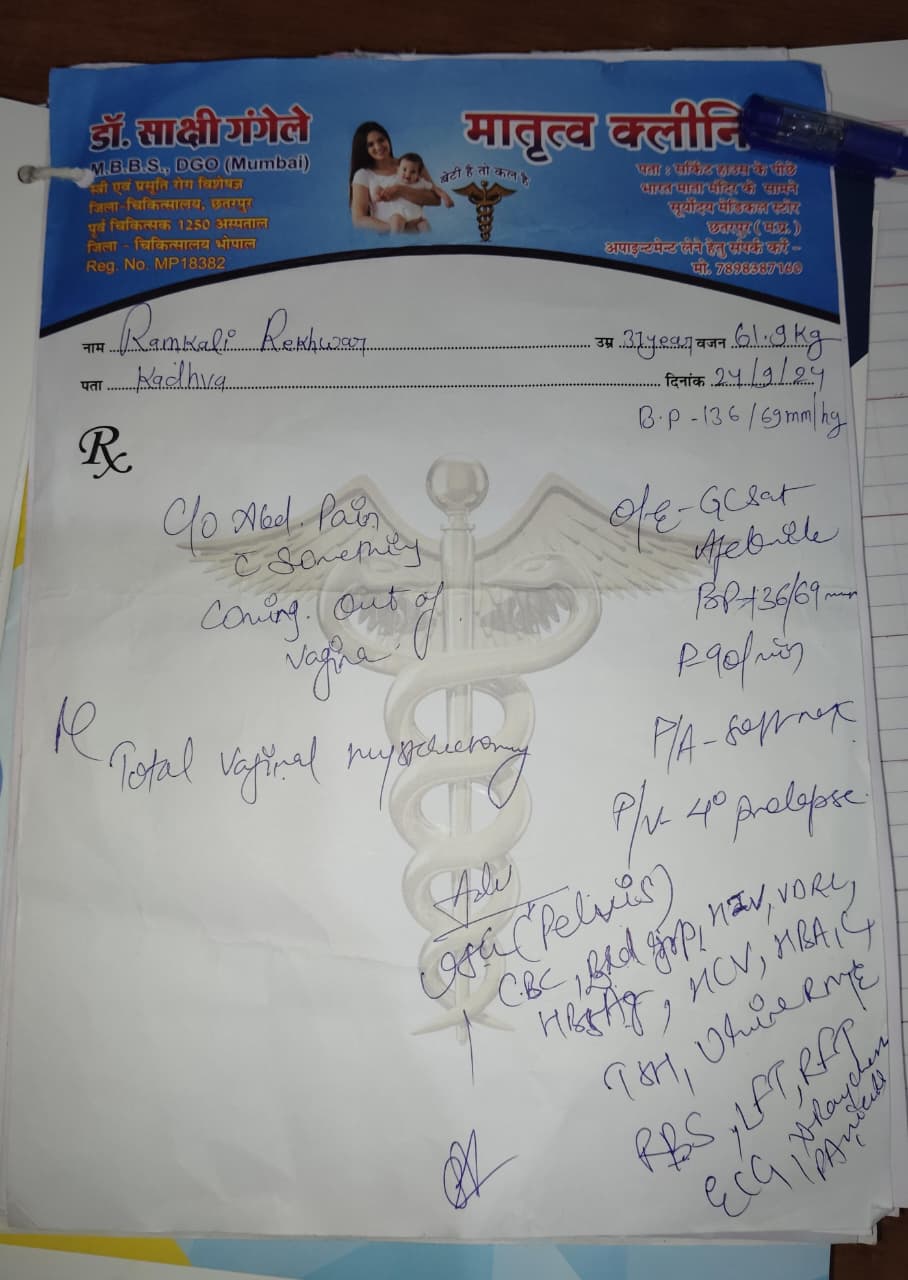 डॉ. साक्षी गंगेले
M.B.B.S., DGO (Mumbai)
स्त्री एवं प्रसूति रोग विशेषज्ञ
जिला-चिकित्सालय, छतरपुर
पूर्व चिकित्सक 1250 अस्पताल
जिला - चिकित्सालय भोपाल
Reg. No. MP18382
बेटी है तो कल है
मातृत्व क्लीनि
पता : सर्किट हाउस के पीछे
भारत माता मंदिर के सामने
सूर्योदय मेडिकल स्टोर
छतरपुर (म.प्र.)
अपाइन्टमेन्ट लेने हेतु संपर्क करें -
मो. 7898387160
नाम Ramkali Rekhwar उम्र 37year वजन 61.9 Kg
पता Kadhva दिनांक 24/9/24
B.P - 136/69mm/hg
Rx
C/o Abd. Pain
Coming out of
vagina
Total vaginal
O/E - GC Sat
Afebrile
BP-136/69mm
P-90/min
P/A - Soft
P/V - 4° prolapse
Adv
USG (Pelvis)
CBC, Bld grp, HIV, VDRL,
HBsAg, HCV, HBA1C
TSH, Urine RME
RBS, LFT, RFT
ECG, Xray chest
PA view